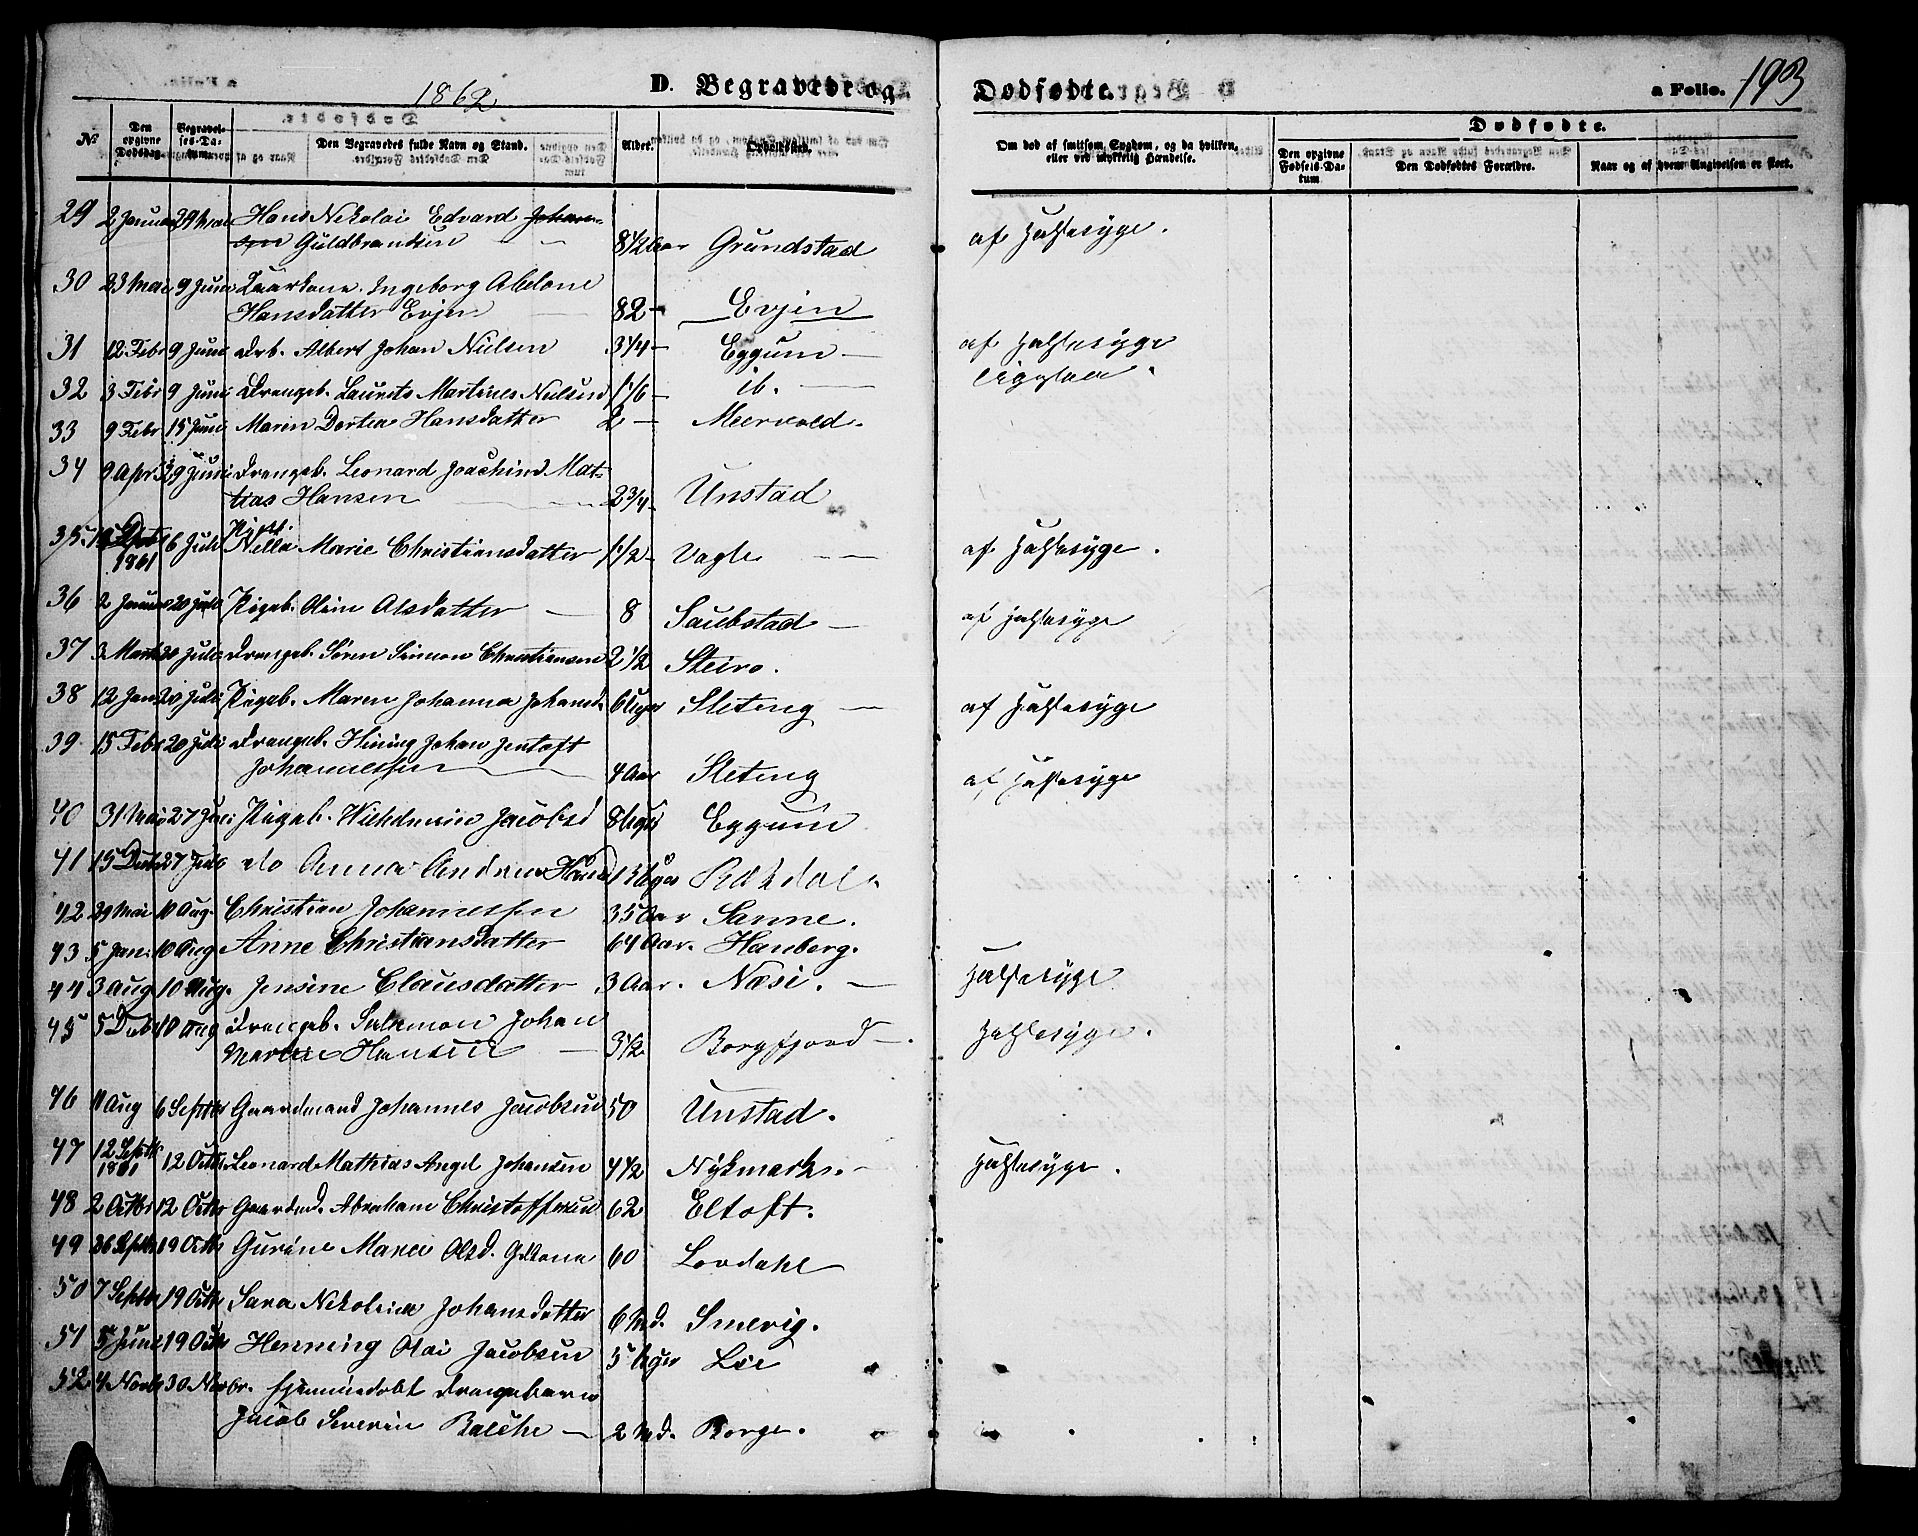 1862 D. Begravede og Dødfødte. a Folio. 193
No Den opgivne Dødsdag. Begravelses-Datum. Den Begravedes fulde Navn og Stand. Alder. Opholdssted. Om død af smitsom Sygdom, og da hvilken, eller ved ulykkelig Hændelse. Dødfødte.
Den opgivne Fødsels-Datum Den Dødfødtes Forældre. Naar og af hvem Angivelsen er skeet.
29 2 Januar 29 Mai Hans Nikolai Edvard Johan-
sen Guldbrandsen 8 1/2 Aar Grundstad af Halssyge.
30 23 Mai 9 Juni Ingeborg
Hansdatter Evjen 82 Evjen
31 12 Febr 9 Juni Drb. Albert Johan Nielsen 3 1/4 Eggum af Halssyge
32 3 Febr 9 Juni Drengeb. Laurits Martines Nielsen 1 1/6 ib. ligesaa.
33 9 Febr 15 Juni Maren Dortea Hansdatter 2 Meervold.
34 9 Apr 29 Juni Drengeb. Leonard Joachim Mat-
tias Hansen 2 3/4 Unstad
35 1861 6 Juli Pigeb. Nella Marie Christiansdatter 1 1/2 Vagle af Halssyge.
36 2 Januar 20 Juli Pigeb. Oline Olsdatter 8 Saubstad af Halssyge
37 3 Marts 20 Juli Drengeb. Søren Simon Christiansen 2 1/2 Steiro.
38 12 Jan 20 Juli Pigeb. Maren Johanna Johansd. 6 Uger Sleteng af Halssyge
39 15 Febr 20 Juli Drengeb. Hining Johan Jentoft
Johannessen 4 Aar Sleteng af Halssyge
40 31 Mai 27 Juli Pigeb. Jacobsd 8 Uger Eggum
41 15 27 Juli do Anna 13 Uger
42 29 Mai 10 Aug. Christian Johannessen 35 Aar Sanne.
43 5 Jan. 10 Aug Anne Christiansdatter 64 Aar. Hauberg.
44 3 Aug 10 Aug. Jensine Clausdatter 3 Aar. Næsi. Halssyge
45 5 Debr 10 Aug Drengeb. Salamon Johan
Hansen 3 1/2 Borgfjord Halssyge.
46 11 Aug 6 Septbr Gaardmand Johannes Jacobsen 50 Unstad.
47 12 Septbr 1861 12 Octbr Leonard Mathias Angel Johansen 4 1/2 Nykmark. Halssyge.
48 2 Octbr 12 Octbr Gaardmd. Abraham Christoffersen 62 Eltoft.
49 26 Septbr 19 Octbr Gurine Maria Olsd. 60 Lovdahl
50 7 Septbr 19 Octbr Sara Nikolina Johansdatter 6 Md. Smervig.
51 5 Juni 19 Octbr Henning Olai Jacobsen 5 Uger Lie
52 4 Novbr 30 Novbr. hjemmedøbt Drengebarn
Jacob Severin Balche 2 Md. Borge.